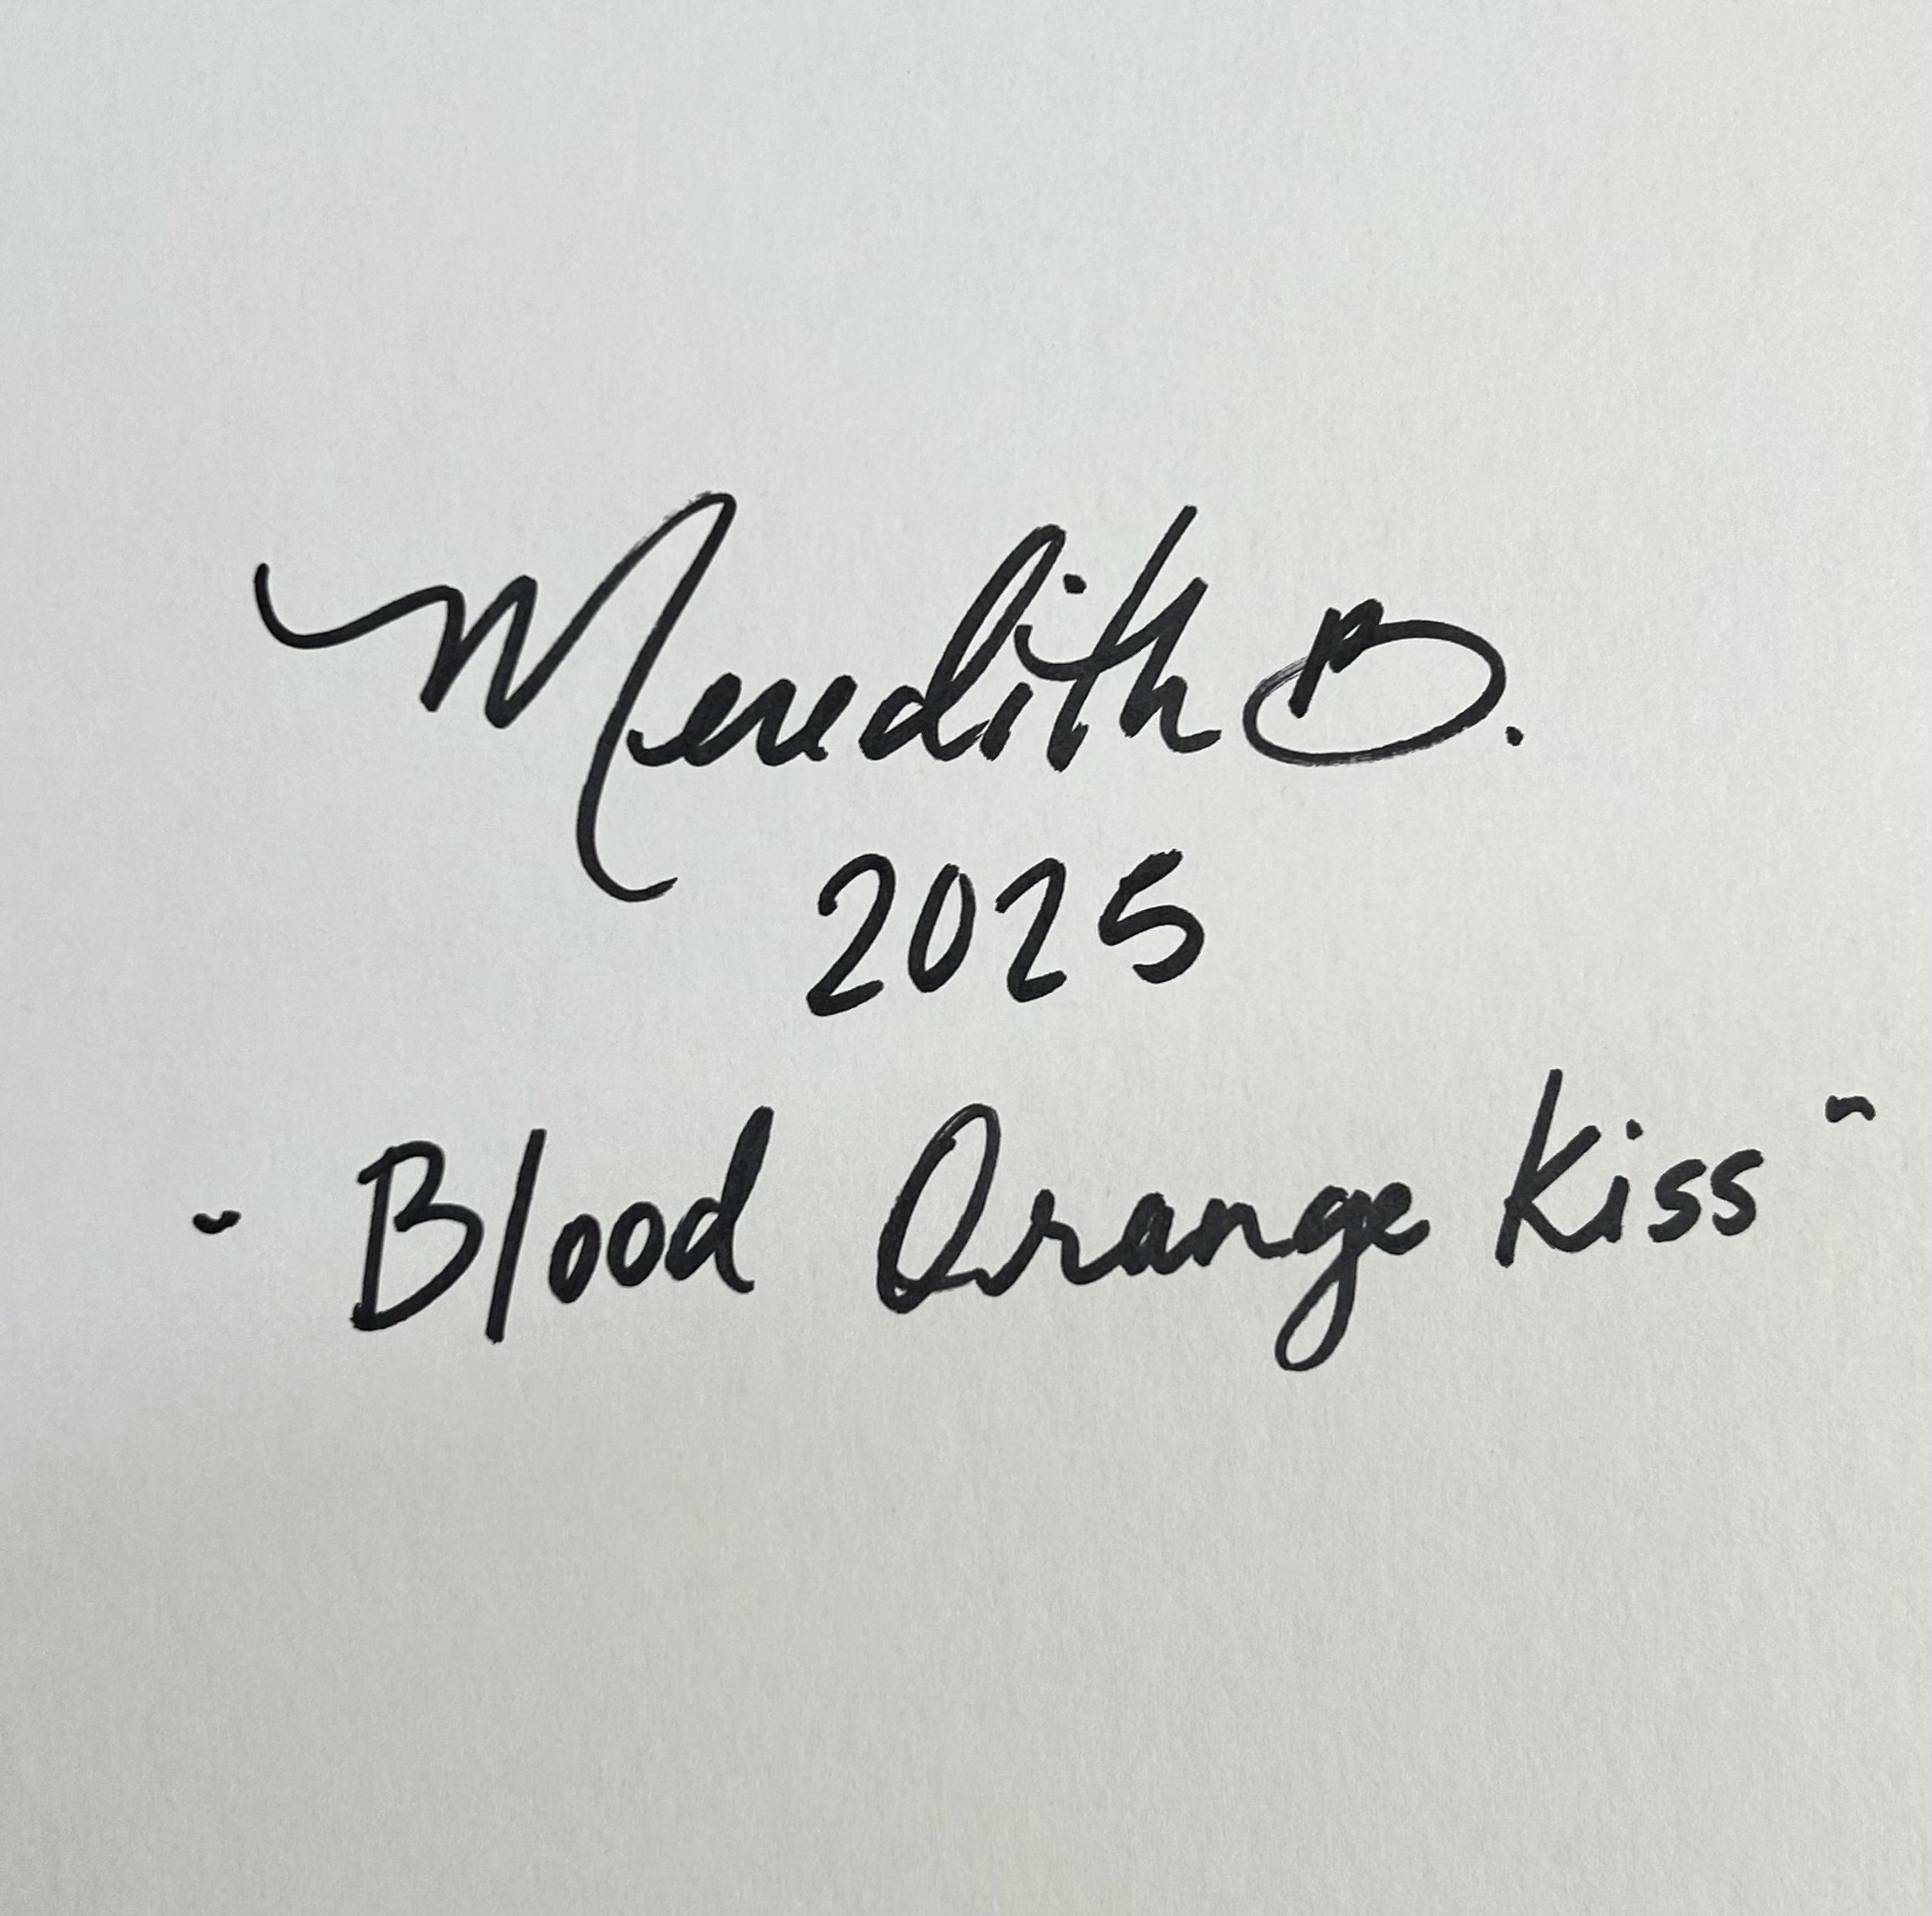 Meredith B.
2025
- Blood Orange Kiss -